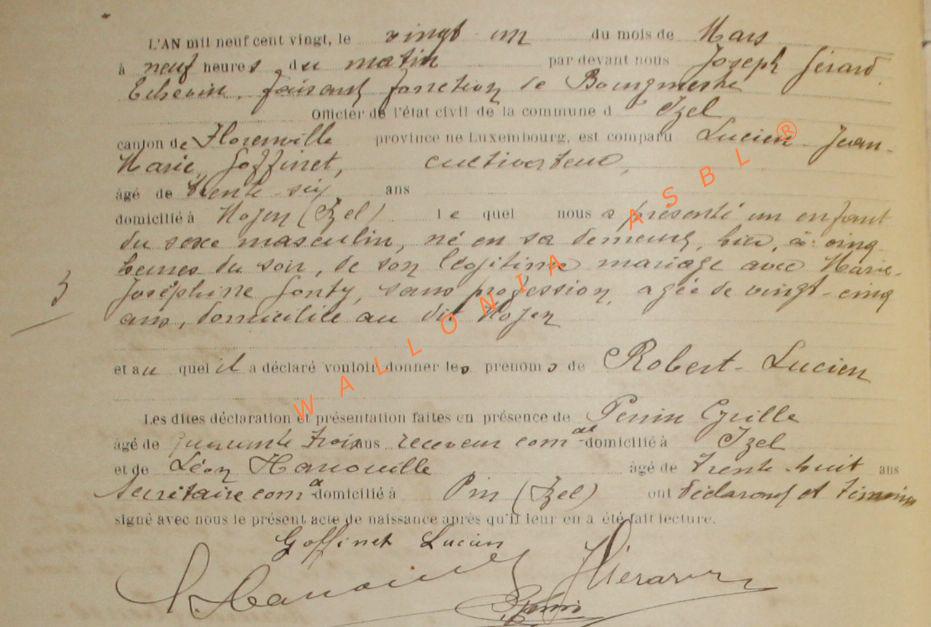 L'AN mil neuf cent vingt, le vingt un du mois de Mars
à neuf heures du matin par devant nous Joseph Gérard
Echevin, faisant fonction de Bourgmestre
Officier de l'état civil de la commune d Izel
canton de Florenville province de Luxembourg, est comparu Lucien Jean-
Marie Goffinet, cultivateur,
âgé de trente six ans
domicilié à Moyen (Izel) le quel nous a présenté un enfant
du sexe masculin, né en sa demeure, hier, à cinq
heures du soir, de son légitime mariage avec Marie-
3 Joséphine Gonty, sans profession, agée de vingt-cinq
ans, domiciliée au dit Moyen
et au quel il a déclaré vouloir donner les prénoms de Robert-Lucien
Les dites déclaration et présentation faites en présence de Perrin Cyrille
âgé de quarante trois ans receveur comal domicilié à Izel
et de Léon Hanouille âgé de trente huit ans
Secrétaire comal domicilié à Pin (Izel) ont déclarant et témoins
signé avec nous le présent acte de naissance après qu'il leur en a été fait lecture.
Goffinet Lucien
WALLONIA ASBL ®